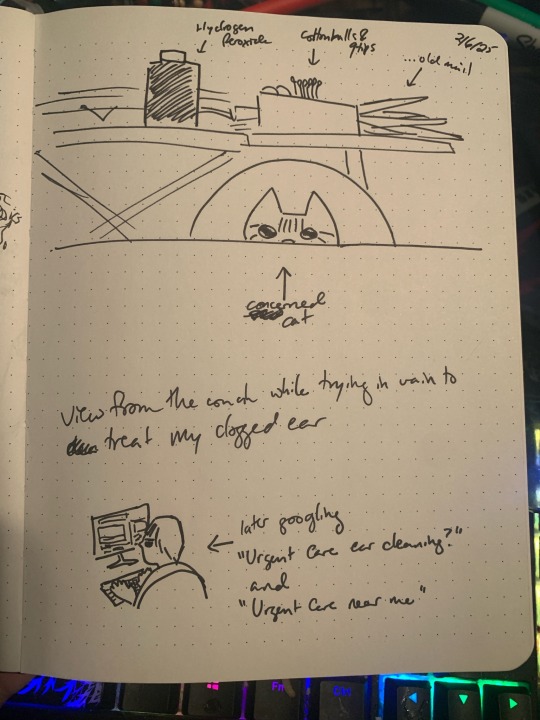 Hydrogen
Peroxide
Cottonballs &
qtips
2/6/25
...old mail
concerned
cat
View from the couch while trying in vain to
treat my clogged ear
later googling
"Urgent Care ear cleaning?"
and
"Urgent Care near me"
Fn
Ctrl